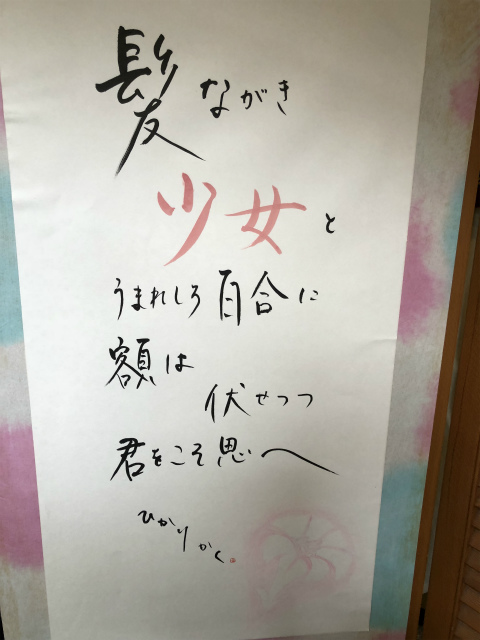 髪ながき
少女と
うまれしろ百合に
額は
伏せつつ
君をこそ思へ
ひかりかく